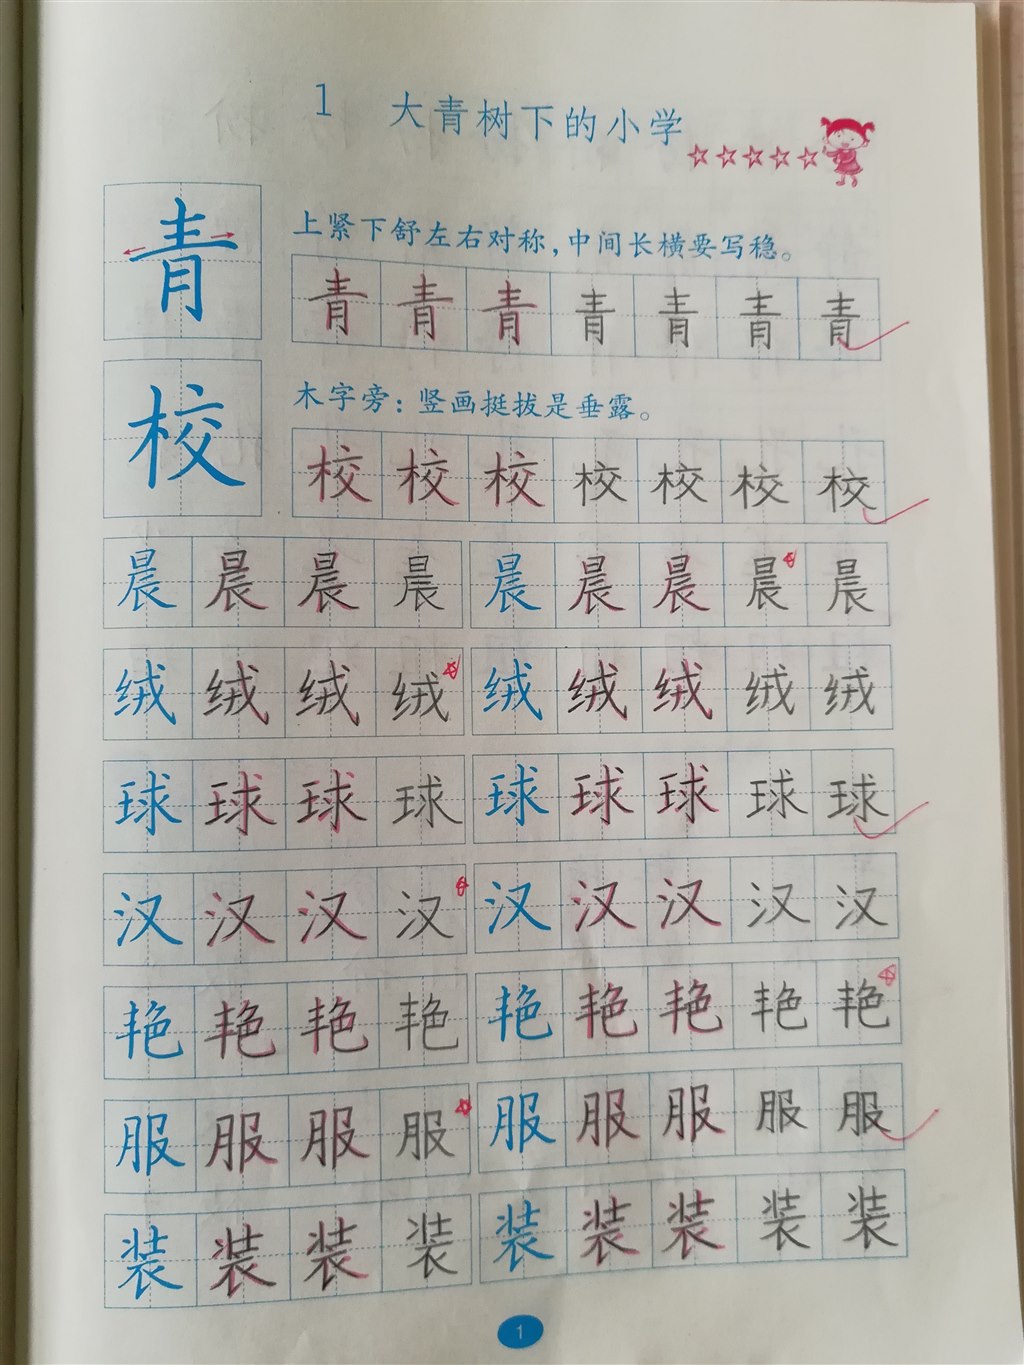 1 大青树下的小学
青
上紧下舒左右对称，中间长横要写稳。
青青青青青青青
校
木字旁：竖画挺拔是垂露。
校校校校校校校
晨晨晨晨晨晨晨晨晨
绒绒绒绒绒绒绒绒绒
球球球球球球球球球
汉汉汉汉汉汉汉汉汉
艳艳艳艳艳艳艳艳艳
服服服服服服服服服
装装装装装装装装装
1